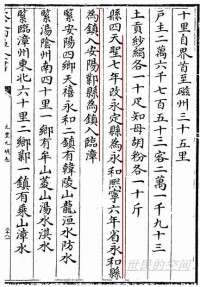 十里自界首至磁州三十五里
戶主二萬六千七百五十三客二萬一千九十三
土貢紗絹各一十疋知母胡粉各一十斤
縣四天聖七年改永定縣為永和熙寧六年省永和縣
為鎮入安陽鄴縣為鎮入臨漳
緊安陽四鄉天禧永和二鎮有韓陵山龍洹水防水
緊湯陰州南四十里一鄉有牟山羑山湯水淇水
緊臨漳州東北六十里二鄉鄴一鎮有乗山漳水
元豐九域志
世民的空间